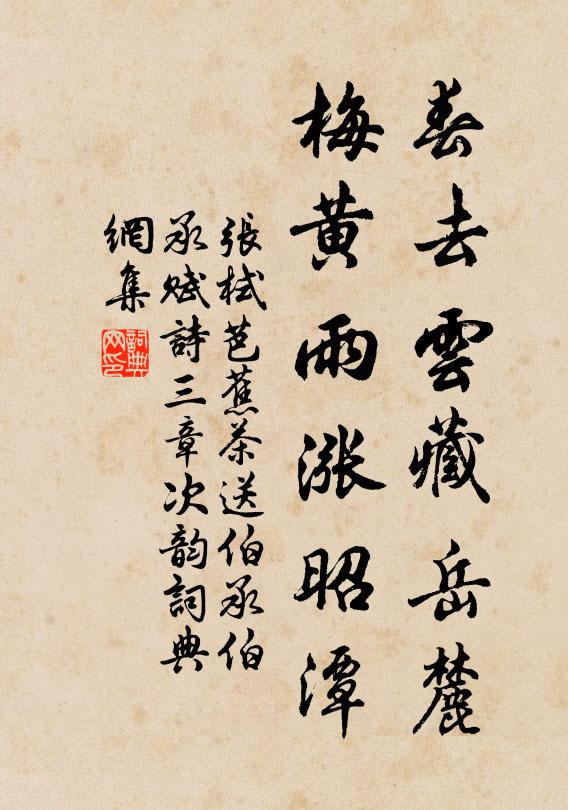 春去雲藏岳麓
梅黄雨漲昭潭
張栻芭蕉茶送伯承伯
承赋詩三章次韵詞典
網集
詞典网印